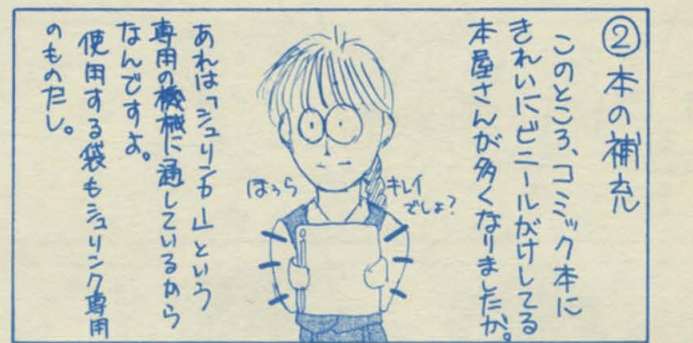 ②本の補充
このところ、コミック本に
きれいにビニールがけしてる
本屋さんが多くなりましたが。
ほぅら
キレイ
でしょ?
あれは「シュリンカー」という
専用の機械に通しているから
なんですよ。
使用する袋もシュリンク専用
のものだし。